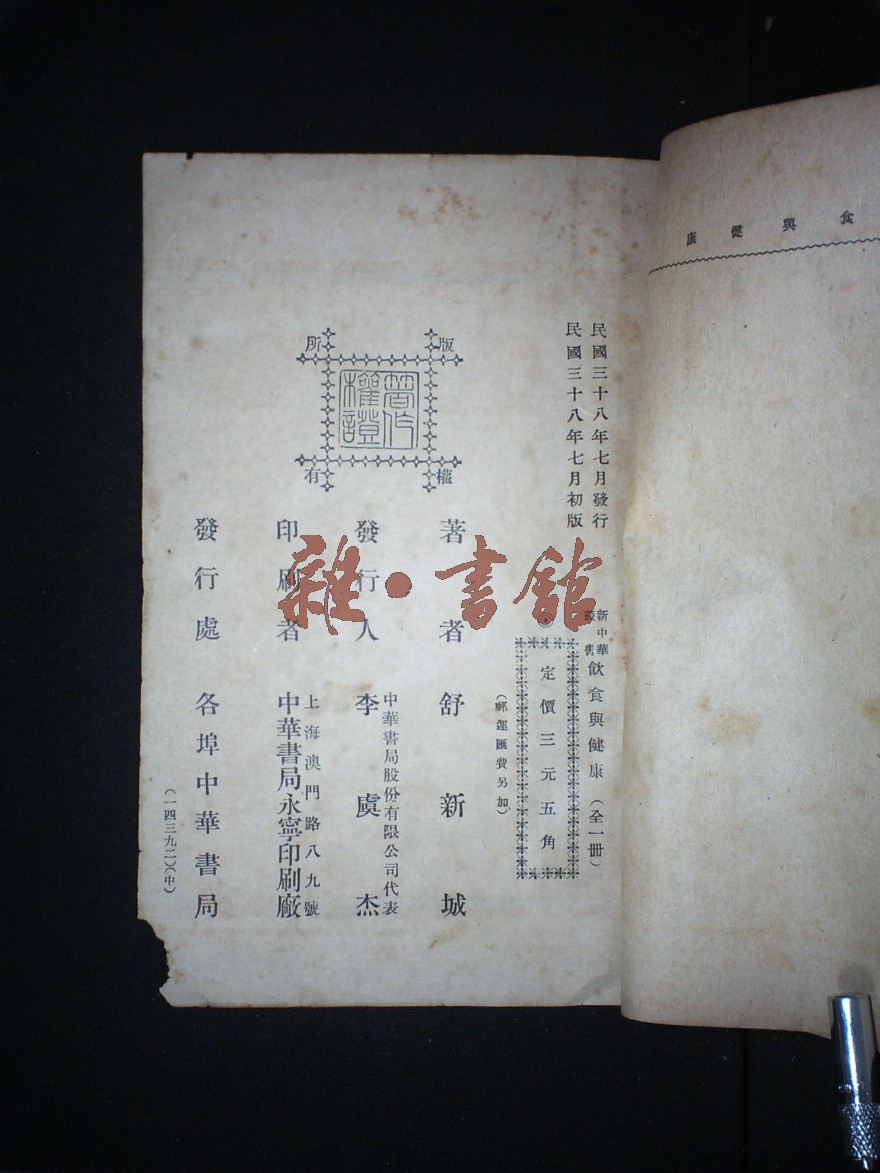 食與健康
民國三十八年七月發行
民國三十八年七月初版
新中華
叢書
飲食與健康（全一冊）
定價三元五角
（郵運匯費另加）
版權所有
著作
權證
著者 舒新城
中華書局股份有限公司代表
發行人 李虞杰
上海澳門路八九號
印刷者 中華書局永寧印刷廠
發行處 各埠中華書局
（一四三九二）（中）
雜·書館